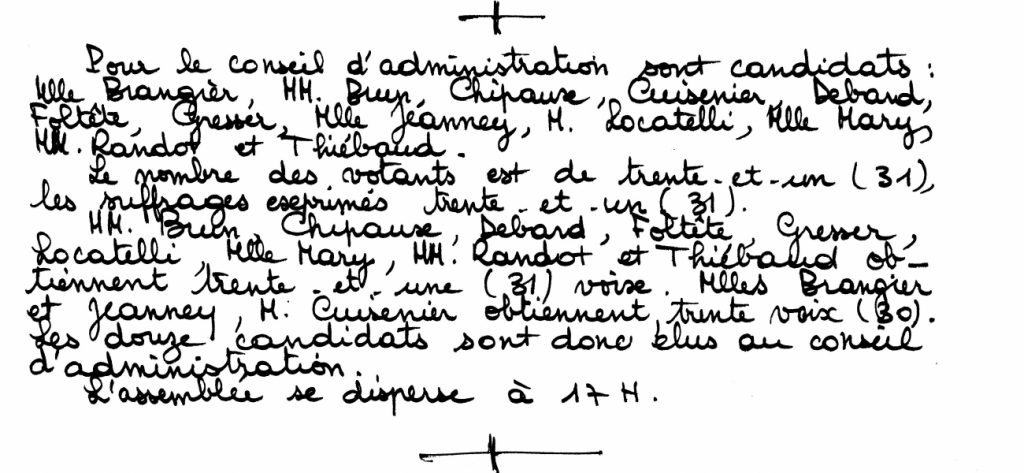 Pour le conseil d'administration sont candidats :
Mlle Brangier, MM. Brun, Chipause, Cuisenier, Debard,
Foltête, Gresser, Mlle Jeanney, M. Locatelli, Mlle Mary,
MM. Randot et Thiébaud.
Le nombre des votants est de trente-et-un (31),
les suffrages exprimés trente-et-un (31).
MM. Brun, Chipause, Debard, Foltête, Gresser,
Locatelli, Mlle Mary, MM. Randot et Thiébaud ob-
tiennent trente-et-une (31) voix. Mlles Brangier
et Jeanney, M. Cuisenier obtiennent trente voix (30).
Les douze candidats sont donc élus au conseil
d'administration.
L'assemblée se disperse à 17 H.